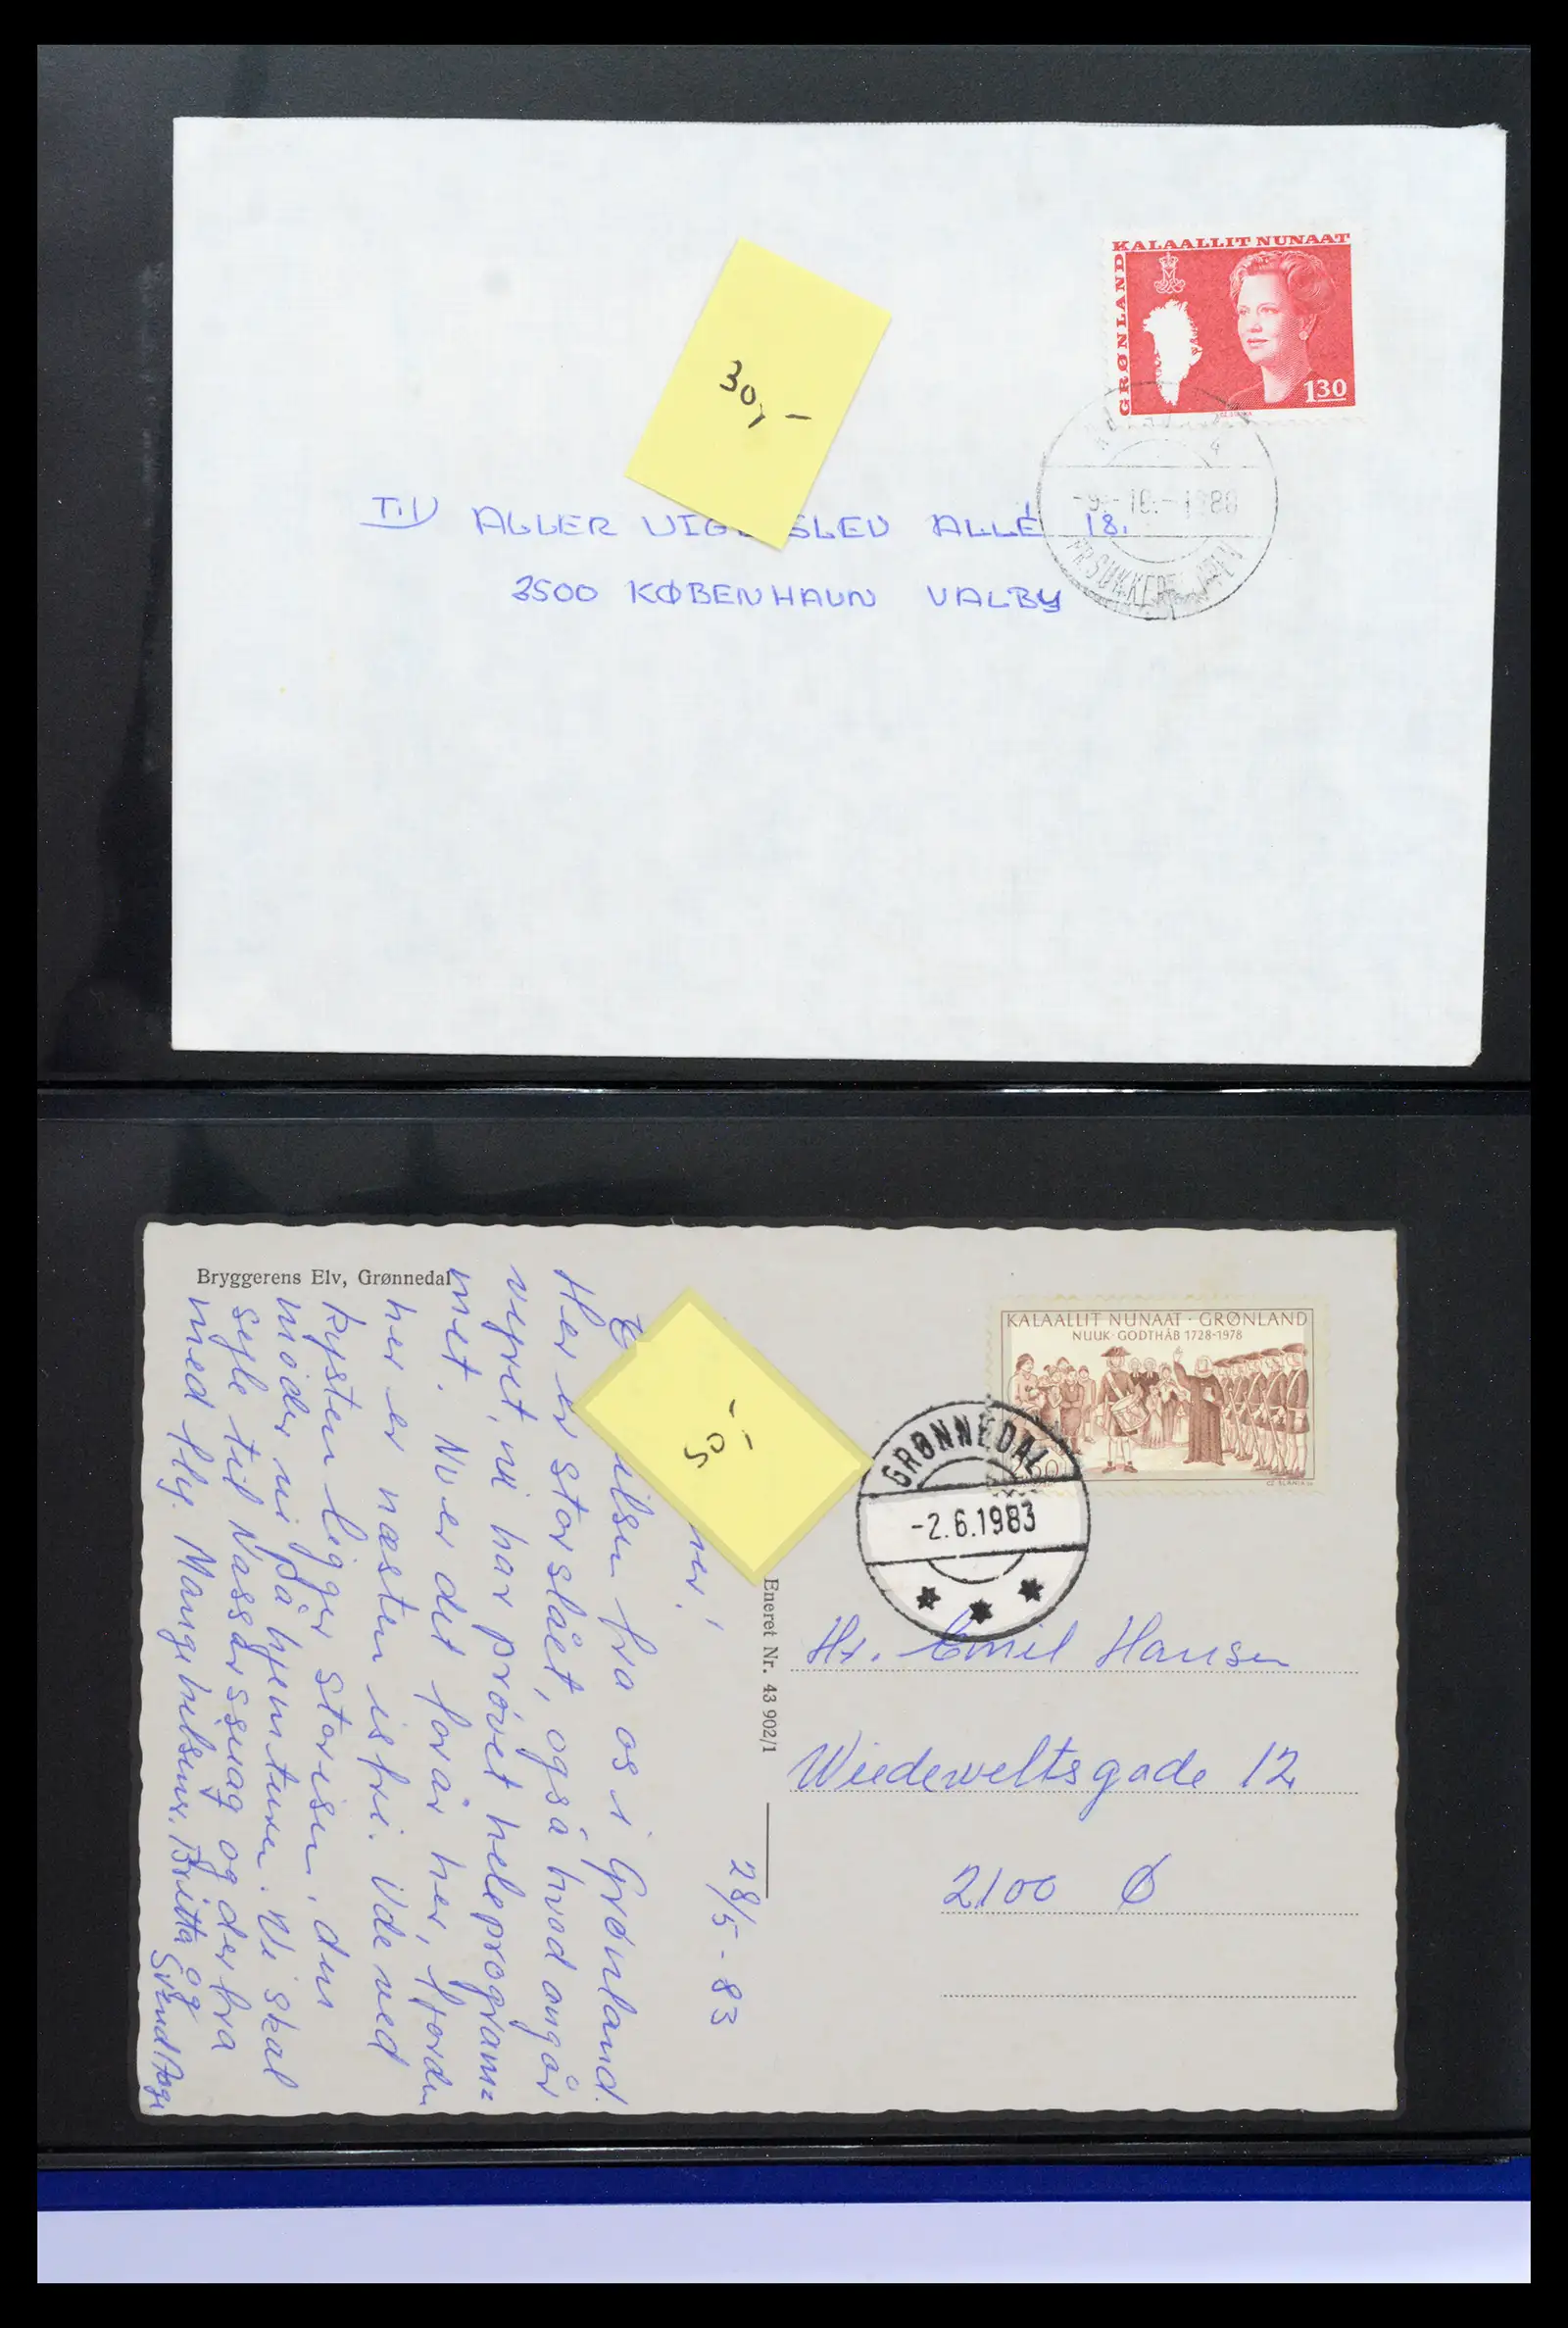 KALAALLIT NUNAAT
GRØNLAND
1.30
30,-
-9.-10.-1980
FR.SUKKER
Til ALLER ALLÉ 18.
3500 KØBENHAVN VALBY
Bryggerens Elv, Grønnedal
28/5-83
fra os i Grønland.
Her er storslået, også hvad angår
vejret, vi har prøvet hele program=
met. Nu er det forår her, fjorden
her er næsten isfri. Ude ved
kysten ligger storisen, den
møder vi på hjemturen. Vi skal
sejle til Narssarssuaq og derfra
med fly. Mange hilsner. Britta og
Svend Aage
50,-
Eneret Nr. 43 902/1
KALAALLIT NUNAAT · GRØNLAND
NUUK · GODTHÅB 1728-1978
CZ.SLANIA SC.
GRØNNEDAL
-2.6.1983
Hr. Emil Hansen
Wiedeweltsgade 12
2100 Ø